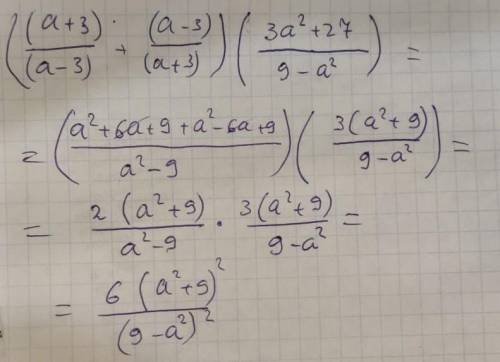 ((a+3)/(a-3) + (a-3)/(a+3)) ((3a²+27)/(9-a²)) =
= ((a²+6a+9+a²-6a+9)/(a²-9)) (3(a²+9)/(9-a²)) =
= 2(a²+9)/(a²-9) · 3(a²+9)/(9-a²) =
= 6(a²+9)²/(9-a²)²